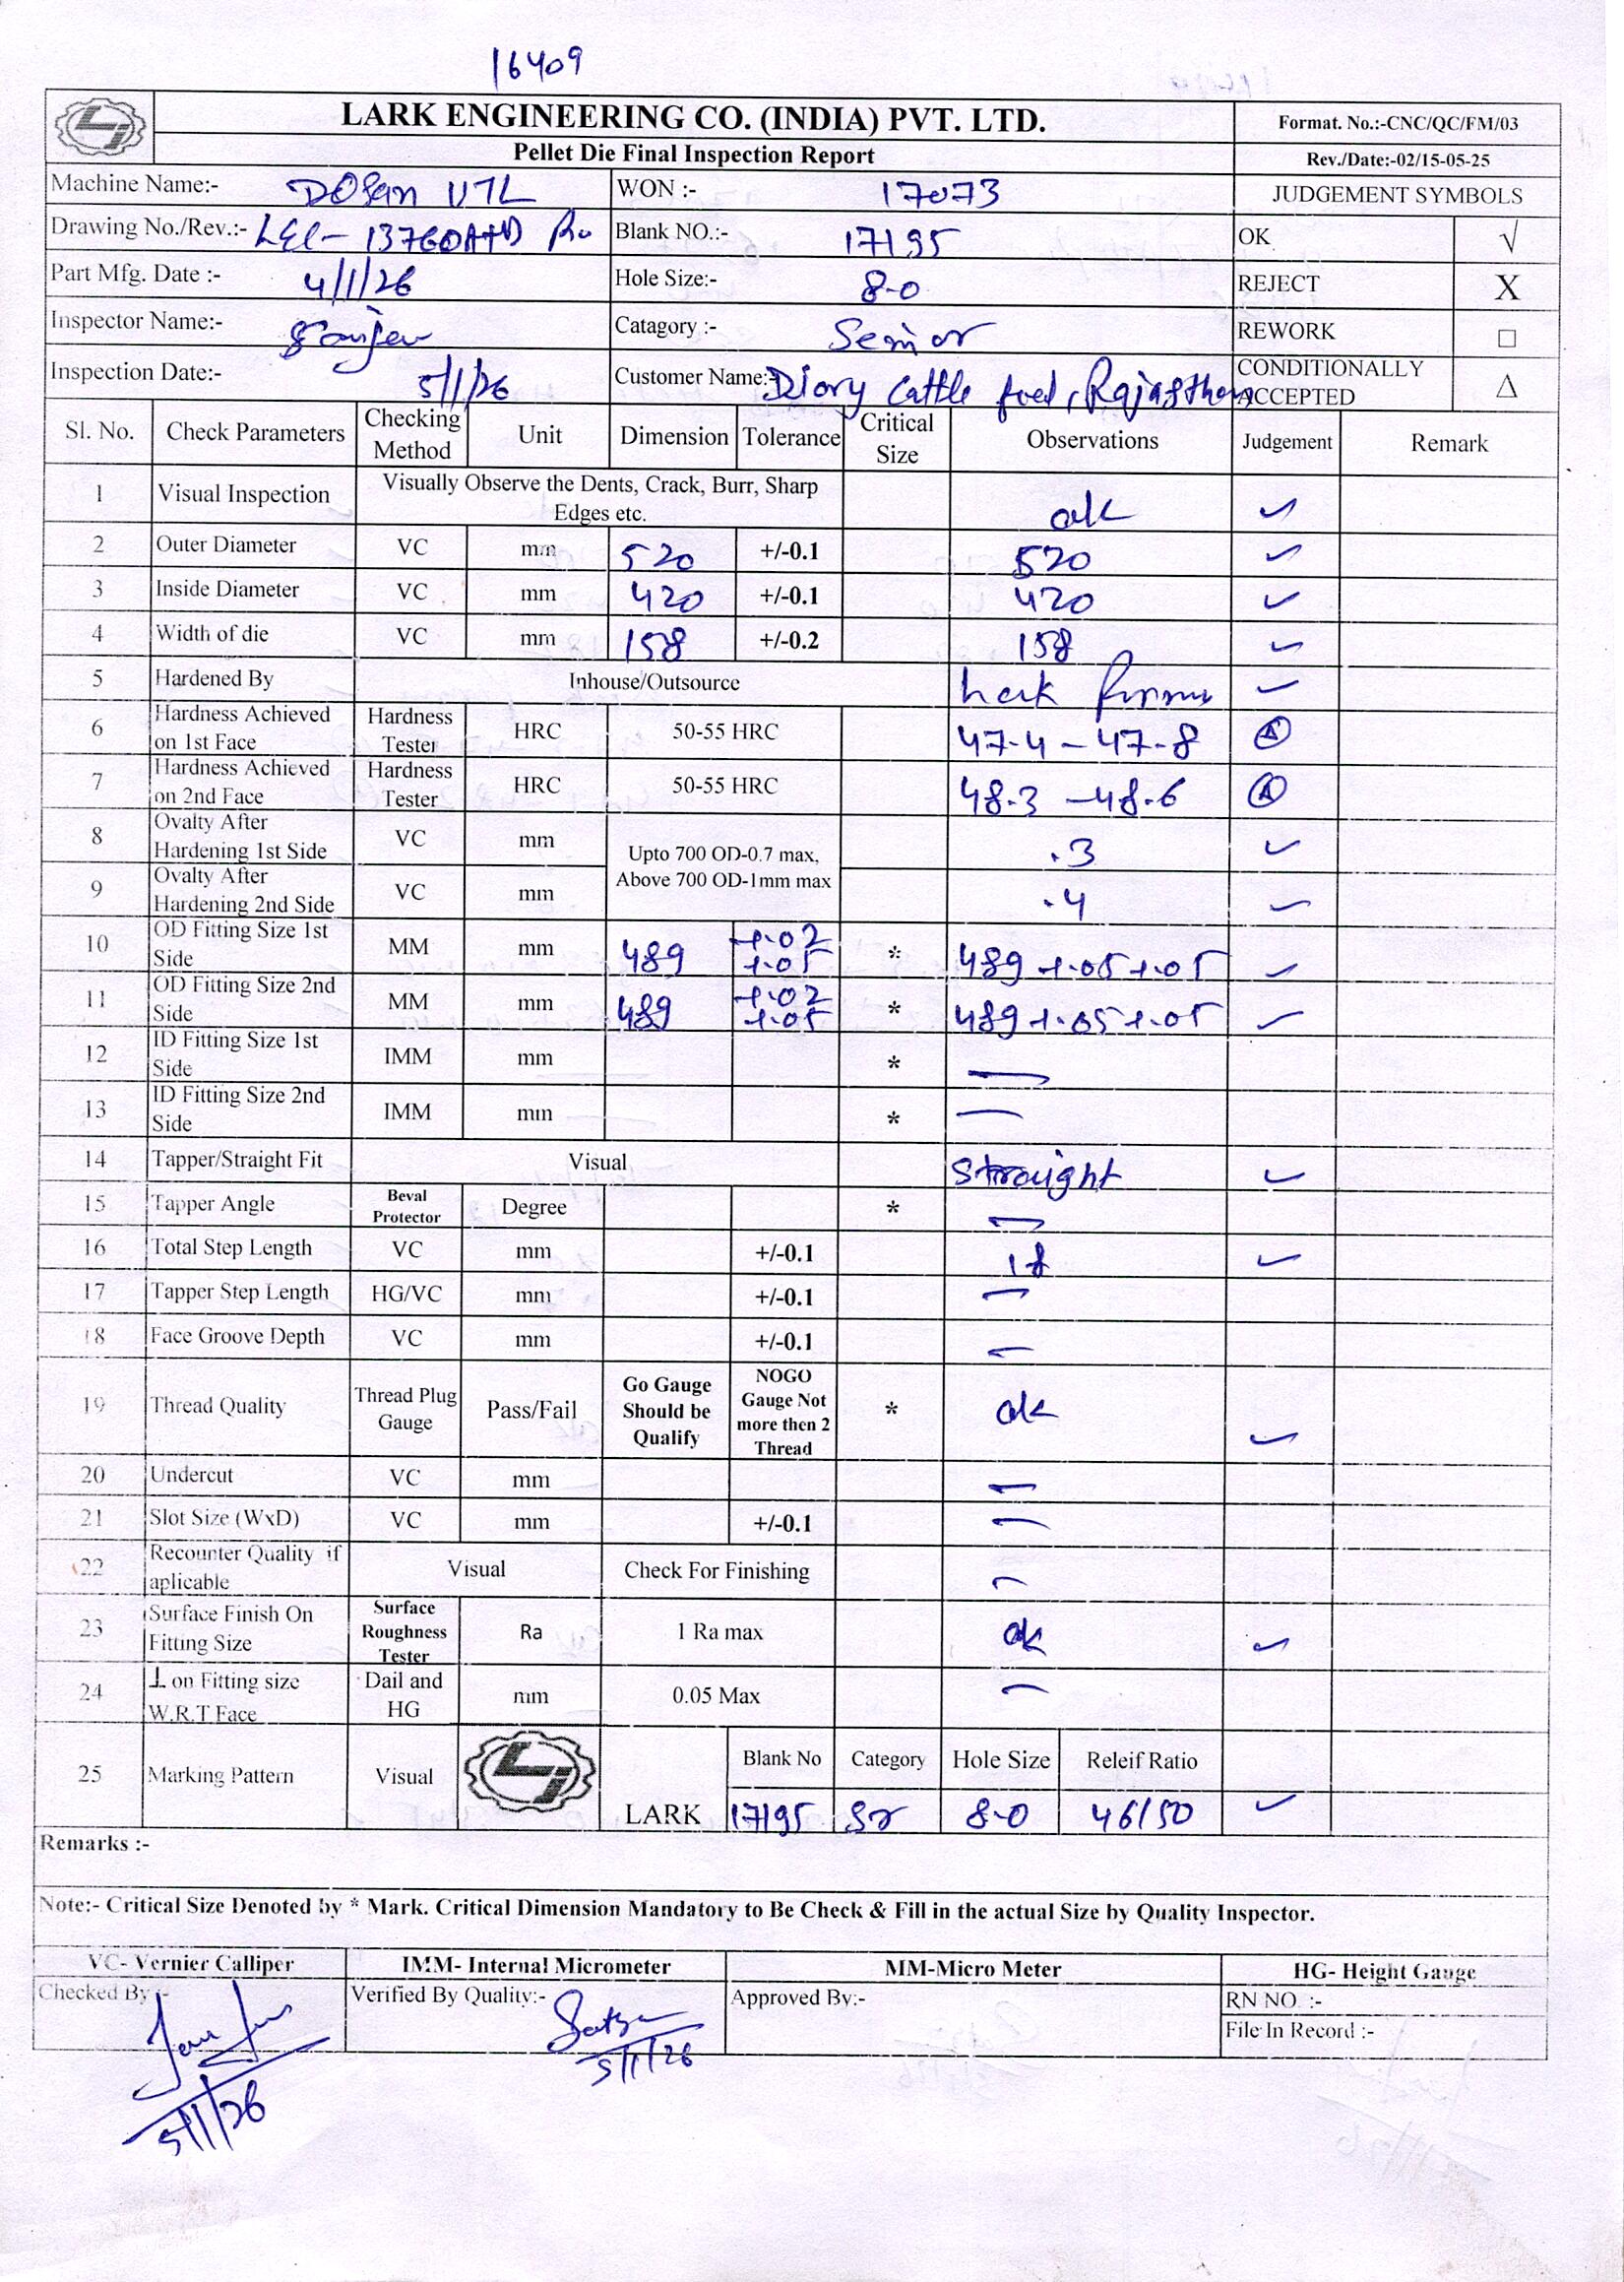 16409
LARK ENGINEERING CO. (INDIA) PVT. LTD.
Format. No.:-CNC/QC/FM/03
Pellet Die Final Inspection Report
Rev./Date:-02/15-05-25
Machine Name:- DOSan VTL WON :- 17073 JUDGEMENT SYMBOLS
Drawing No./Rev.:- Blank NO.:- 17195 OK √
Part Mfg. Date :- 4/1/26 Hole Size:- 8-0 REJECT X
Inspector Name:- Catagory :- Senior REWORK □
Inspection Date:- 5/1/26 Customer Name:- Diary Cattle feed, Rajasthan CONDITIONALLY ACCEPTED Δ
Sl. No. Check Parameters Checking Method Unit Dimension Tolerance Critical Size Observations Judgement Remark
1 Visual Inspection Visually Observe the Dents, Crack, Burr, Sharp Edges etc. ok ✓
2 Outer Diameter VC mm 520 +/-0.1 520 ✓
3 Inside Diameter VC mm 420 +/-0.1 420 ✓
4 Width of die VC mm 158 +/-0.2 158 ✓
5 Hardened By Inhouse/Outsource ✓
6 Hardness Achieved on 1st Face Hardness Tester HRC 50-55 HRC 47-4 – 47-8
7 Hardness Achieved on 2nd Face Hardness Tester HRC 50-55 HRC 48-3 – 48-6
8 Ovalty After Hardening 1st Side VC mm Upto 700 OD-0.7 max, Above 700 OD-1mm max .3 ✓
9 Ovalty After Hardening 2nd Side VC mm .4 ✓
10 OD Fitting Size 1st Side MM mm 489 +.02 +.05 * 489 +.05 +.05 ✓
11 OD Fitting Size 2nd Side MM mm 489 +.02 +.05 * 489 +.05 +.05 ✓
12 ID Fitting Size 1st Side IMM mm * —
13 ID Fitting Size 2nd Side IMM mm * —
14 Tapper/Straight Fit Visual Straight ✓
15 Tapper Angle Beval Protector Degree * —
16 Total Step Length VC mm +/-0.1 18 ✓
17 Tapper Step Length HG/VC mm +/-0.1 —
18 Face Groove Depth VC mm +/-0.1 —
19 Thread Quality Thread Plug Gauge Pass/Fail Go Gauge Should be Qualify NOGO Gauge Not more then 2 Thread * ok ✓
20 Undercut VC mm —
21 Slot Size (WxD) VC mm +/-0.1 —
22 Recounter Quality if aplicable Visual Check For Finishing —
23 Surface Finish On Fitting Size Surface Roughness Tester Ra 1 Ra max ok ✓
24 ⊥ on Fitting size W.R.T Face Dail and HG mm 0.05 Max —
25 Marking Pattern Visual LARK Blank No Category Hole Size Releif Ratio
17195 Sr 8-0 46/50 ✓
Remarks :-
Note:- Critical Size Denoted by * Mark. Critical Dimension Mandatory to Be Check & Fill in the actual Size by Quality Inspector.
VC- Vernier Calliper IMM- Internal Micrometer MM-Micro Meter HG- Height Gauge
Checked By :- Verified By Quality:- Approved By:- RN NO. :-
File In Record :-
5/1/26
5/1/26